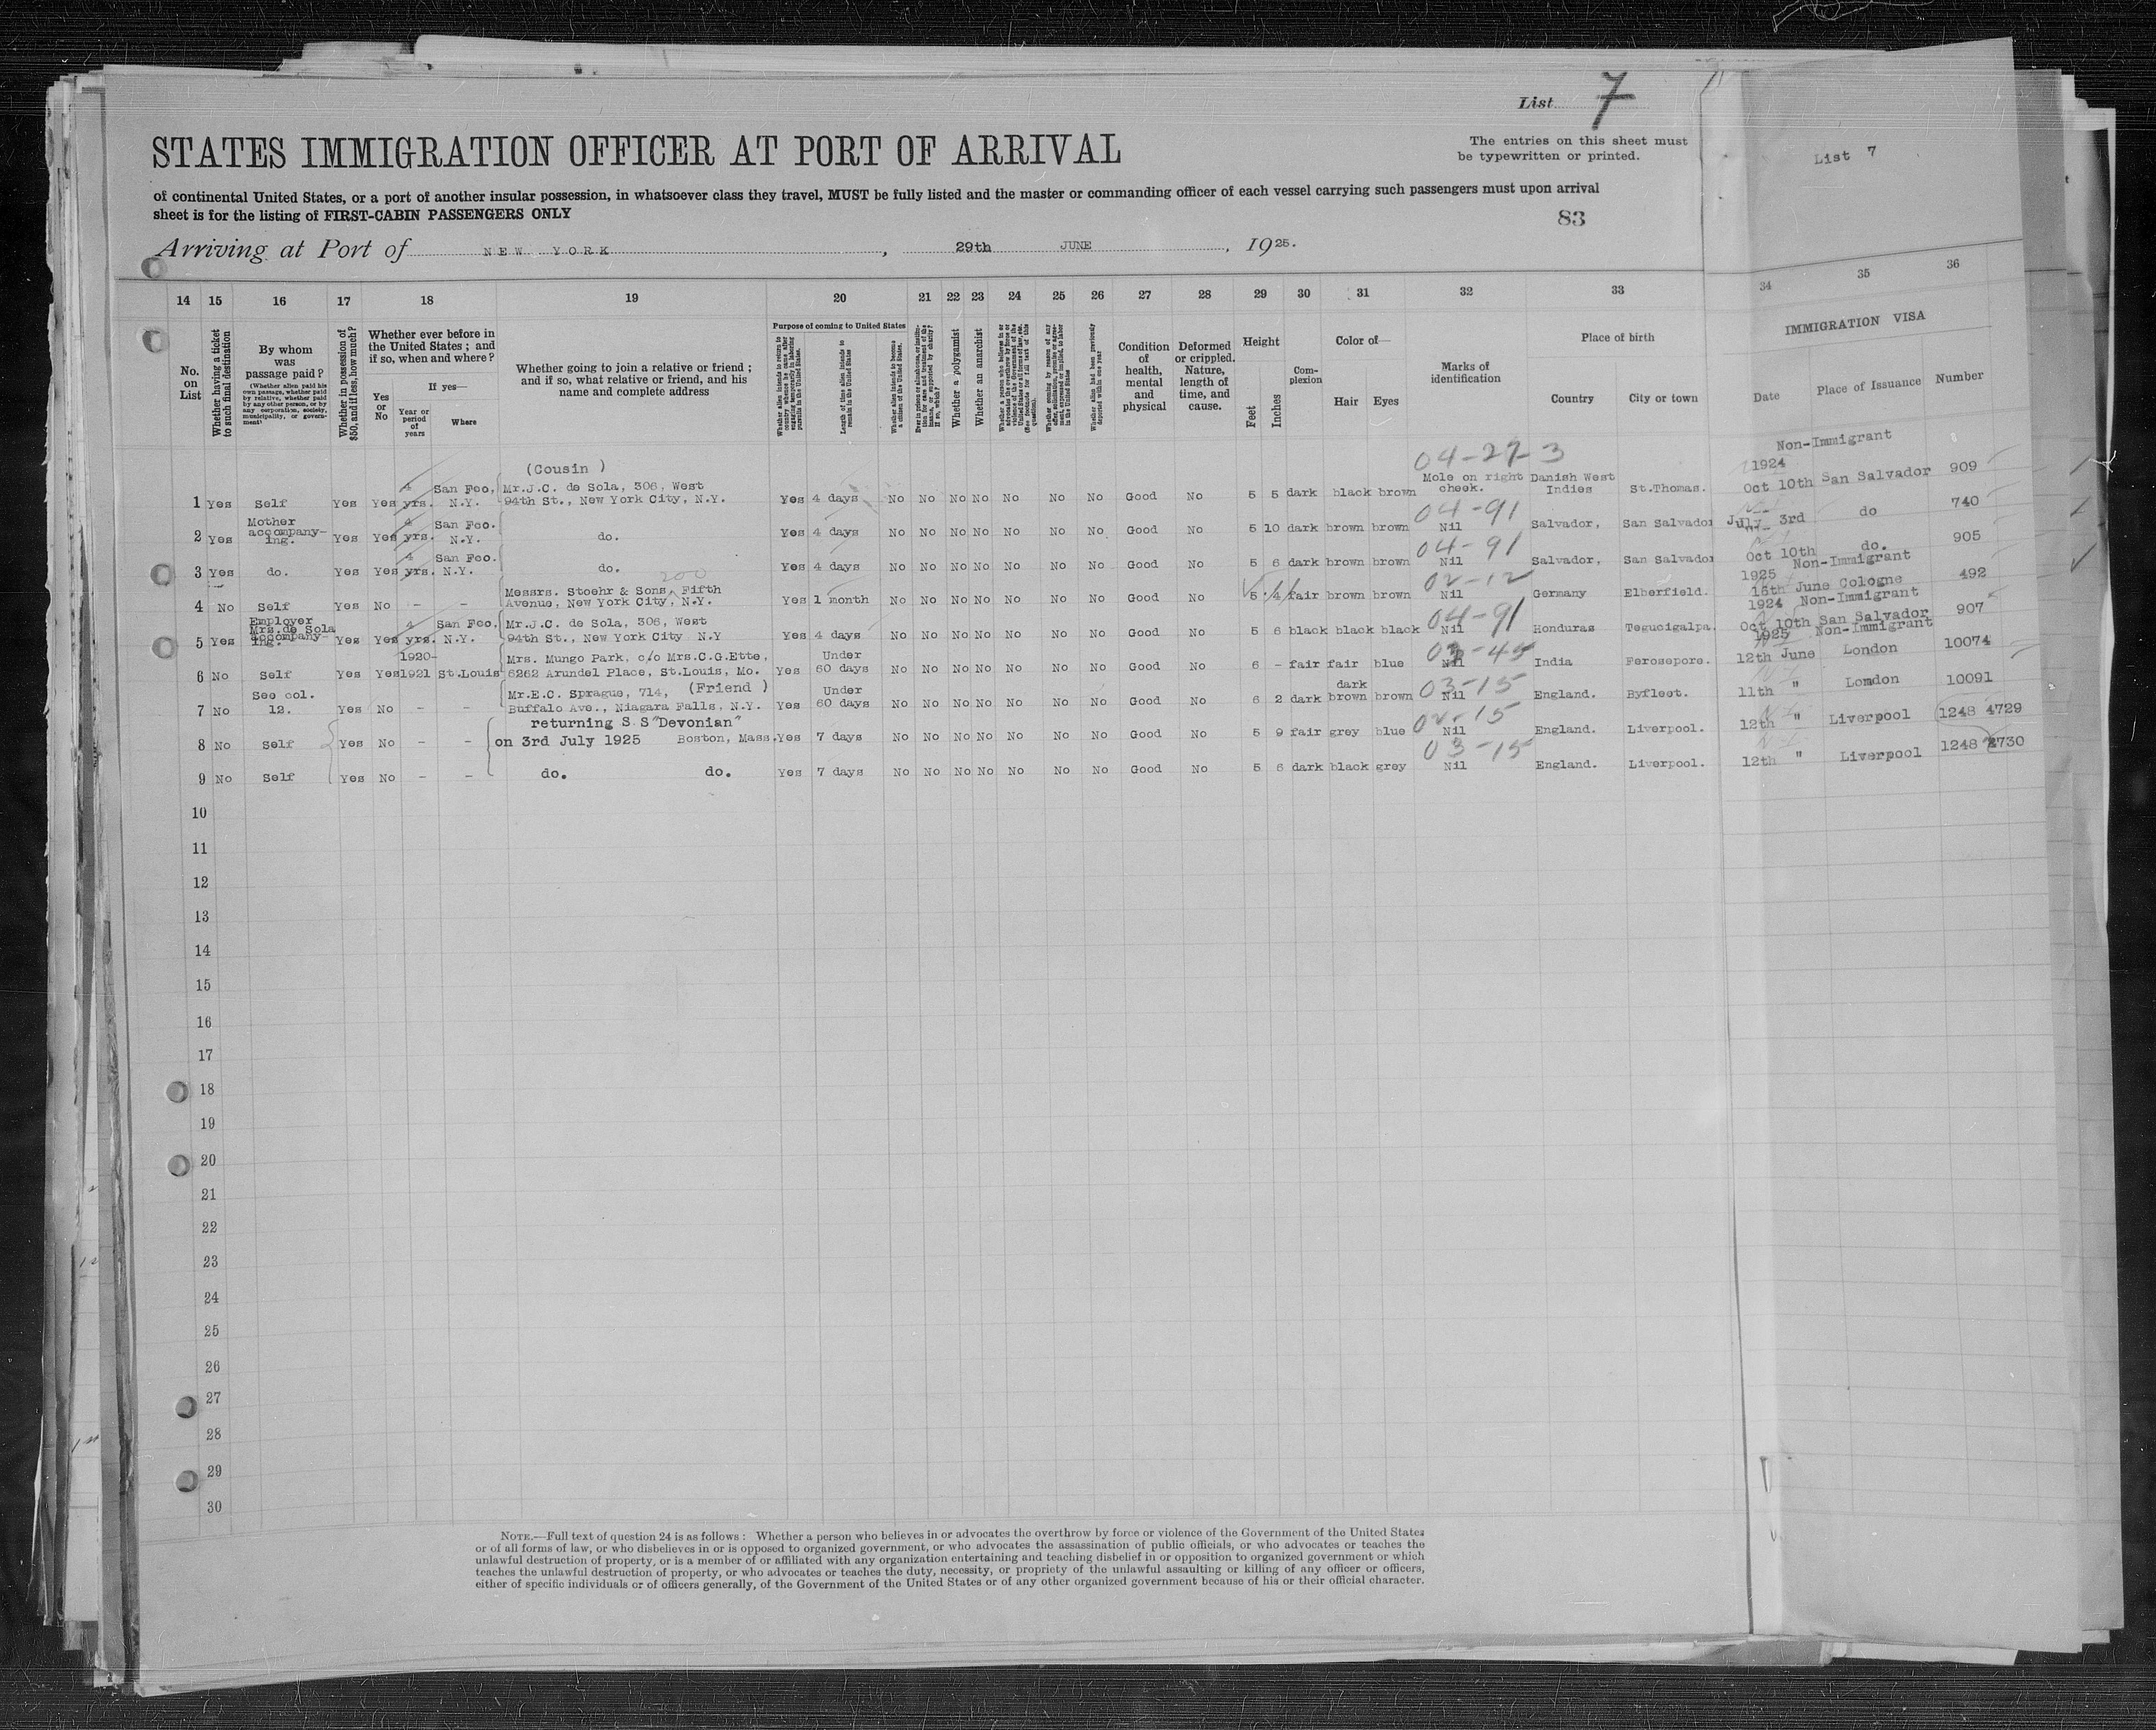 List 7
The entries on this sheet must
be typewritten or printed.
List 7
STATES IMMIGRATION OFFICER AT PORT OF ARRIVAL
of continental United States, or a port of another insular possession, in whatsoever class they travel, MUST be fully listed and the master or commanding officer of each vessel carrying such passengers must upon arrival
sheet is for the listing of FIRST-CABIN PASSENGERS ONLY
83
Arriving at Port of NEW YORK, 29th JUNE, 1925.
14 15 16 17 18 19 20 21 22 23 24 25 26 27 28 29 30 31 32 33 34 35 36
No. on List
Whether having a ticket to such final destination
By whom was passage paid?
(Whether alien paid his own passage, whether paid by relative, whether paid by any other person, or by any corporation, society, municipality, or government)
Whether in possession of $50, and if less, how much?
Whether ever before in the United States; and if so, when and where?
Yes or No
If yes—
Year or period of years
Where
Whether going to join a relative or friend; and if so, what relative or friend, and his name and complete address
Purpose of coming to United States
Whether alien intends to return to country whence he came after engaging temporarily in laboring pursuits in the United States.
Length of time alien intends to remain in the United States
Whether alien intends to become a citizen of the United States.
Whether a polygamist
Whether an anarchist
Whether alien had been previously deported within one year
Condition of health, mental and physical
Deformed or crippled. Nature, length of time, and cause.
Height
Feet
Inches
Complexion
Color of—
Hair Eyes
Marks of identification
Place of birth
Country
City or town
IMMIGRATION VISA
Date Place of Issuance Number
(Cousin ) 04-27-3 Non-Immigrant
1 Yes Self Yes Yes 4 yrs. San Fco, N.Y. Mr.J.C. de Sola, 306, West 94th St., New York City, N.Y. Yes 4 days No No No No No No No Good No 5 5 dark black brown Mole on right cheek. Danish West Indies St.Thomas. 1924 Oct 10th San Salvador 909
04-91
2 Yes Mother accompany-ing. Yes Yes 4 yrs. San Fco. N.Y. do. Yes 4 days No No No No No No No Good No 5 10 dark brown brown Nil Salvador, San Salvador July 3rd do 740
04-91
3 Yes do. Yes Yes 4 yrs. San Fco. N.Y. do. Yes 4 days No No No No No No No Good No 5 6 dark brown brown Nil Salvador, San Salvador Oct 10th do. 905
200 02-12 Non-Immigrant
4 No Self Yes No - - Messrs. Stoehr & Sons, Fifth Avenue, New York City, N.Y. Yes 1 month No No No No No No No Good No 5 4 fair brown brown Nil Germany Elberfield. 1925 16th June Cologne 492
04-91 1924 Non-Immigrant
5 Yes Employer Mrs.de Sola accompany-ing. Yes Yes 4 yrs. San Fco, N.Y. Mr.J.C. de Sola, 306, West 94th St., New York City N.Y Yes 4 days No No No No No No No Good No 5 6 black black black Nil Honduras Tegucigalpa. Oct 10th San Salvador 907
03-45 1925 Non-Immigrant
6 No Self Yes Yes 1920-1921 St.Louis Mrs. Mungo Park, c/o Mrs.C.G.Ette, 6262 Arundel Place, St.Louis, Mo. Yes Under 60 days No No No No No No No Good No 6 - fair fair blue Nil India Ferosepore. 12th June London 10074
03-15
7 No See col. 12. Yes No - - Mr.E.C. Sprague, 714, (Friend ) Buffalo Ave., Niagara Falls, N.Y. Yes Under 60 days No No No No No No No Good No 6 2 dark dark brown brown Nil England. Byfleet. 11th " London 10091
8 No Self Yes No - - returning S S "Devonian" on 3rd July 1925 Boston, Mass. Yes 7 days No No No No No No No Good No 5 9 fair grey blue Nil England. Liverpool. 12th " Liverpool 1248 4729
03-15
9 No Self Yes No - - do. do. Yes 7 days No No No No No No No Good No 5 6 dark black grey Nil England. Liverpool. 12th " Liverpool 1248 4730
10
11
12
13
14
15
16
17
18
19
20
21
22
23
24
25
26
27
28
29
30
NOTE.—Full text of question 24 is as follows: Whether a person who believes in or advocates the overthrow by force or violence of the Government of the United States
or of all forms of law, or who disbelieves in or is opposed to organized government, or who advocates the assassination of public officials, or who advocates or teaches the
unlawful destruction of property, or is a member of or affiliated with any organization entertaining and teaching disbelief in or opposition to organized government or which
teaches the unlawful destruction of property, or who advocates or teaches the duty, necessity, or propriety of the unlawful assaulting or killing of any officer or officers,
either of specific individuals or of officers generally, of the Government of the United States or of any other organized government because of his or their official character.